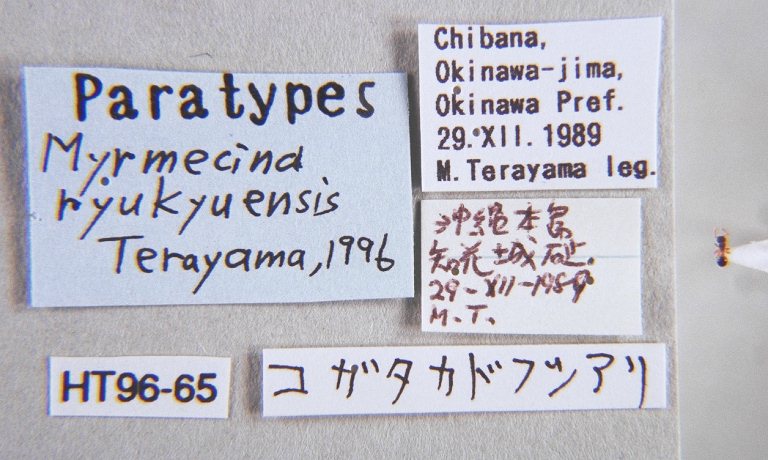 Paratypes
Myrmecina
ryukyuensis
Terayama, 1996
Chibana,
Okinawa-jima,
Okinawa Pref.
29. XII. 1989
M. Terayama leg.
沖縄本島
知花城趾.
29-XII-1989
M.T.
HT96-65
コガタカドフシアリ